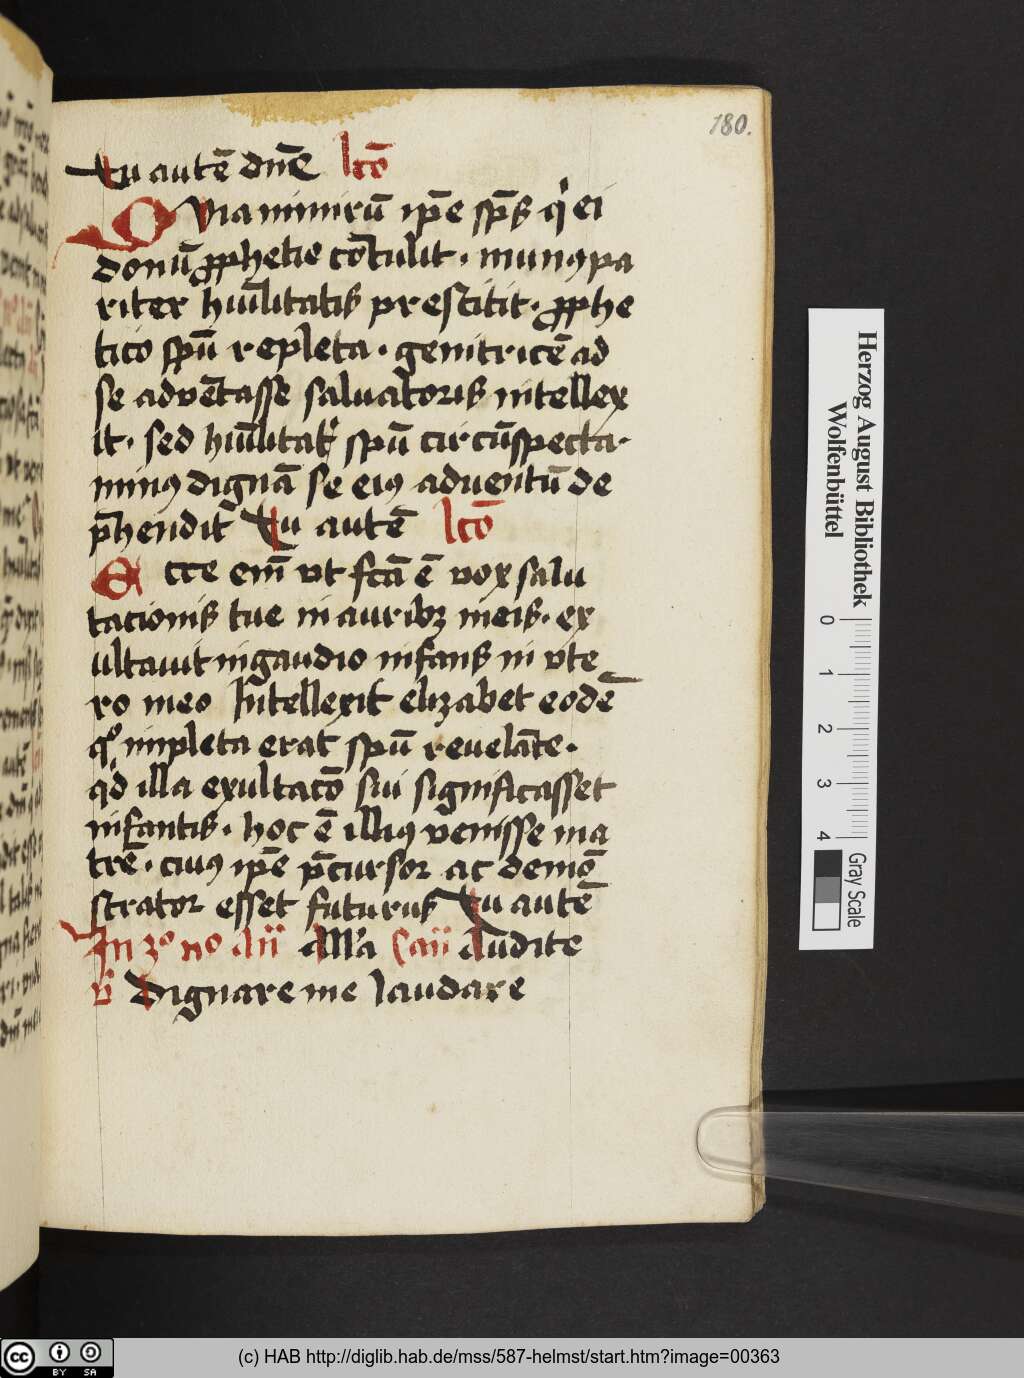 180.
Tu autē dn̄e lc̄o
Quia nimirū ip̄e sp̄s qͥ ei
donū ꝓphetie cōtulit. munꝯ pa
riter hūilitatis prestitit. ꝓphe
tico sp̄u repleta. genitricē ad
se advētasse salvatoris intellex
it. sed hūilitatꝭ sp̄u circūspecta.
minꝯ dignā se eiꝯ adventū de
p̄hendit Tu autē lc̄o
Ecce em̄ vt fc̄a ē vox salu
tacionis tue in auribꝫ meis. ex
ultauit in gaudio infans in vte
ro meo Intellexit elizabet eodē
qͦ impleta erat sp̄u reuelāte.
qd illa exultac̄o siui significasset
infantis. hoc ē illiꝯ venisse ma
trē. cuiꝯ ip̄e p̄cursor ac demō
strator esset futurus Tu autē
In 3º nº an̄ all'a Can̄ Audite
v̄ Dignare me laudare
Herzog August Bibliothek
Wolfenbüttel
0 1 2 3 4
Gray Scale
cc BY SA
(c) HAB http://diglib.hab.de/mss/587-helmst/start.htm?image=00363